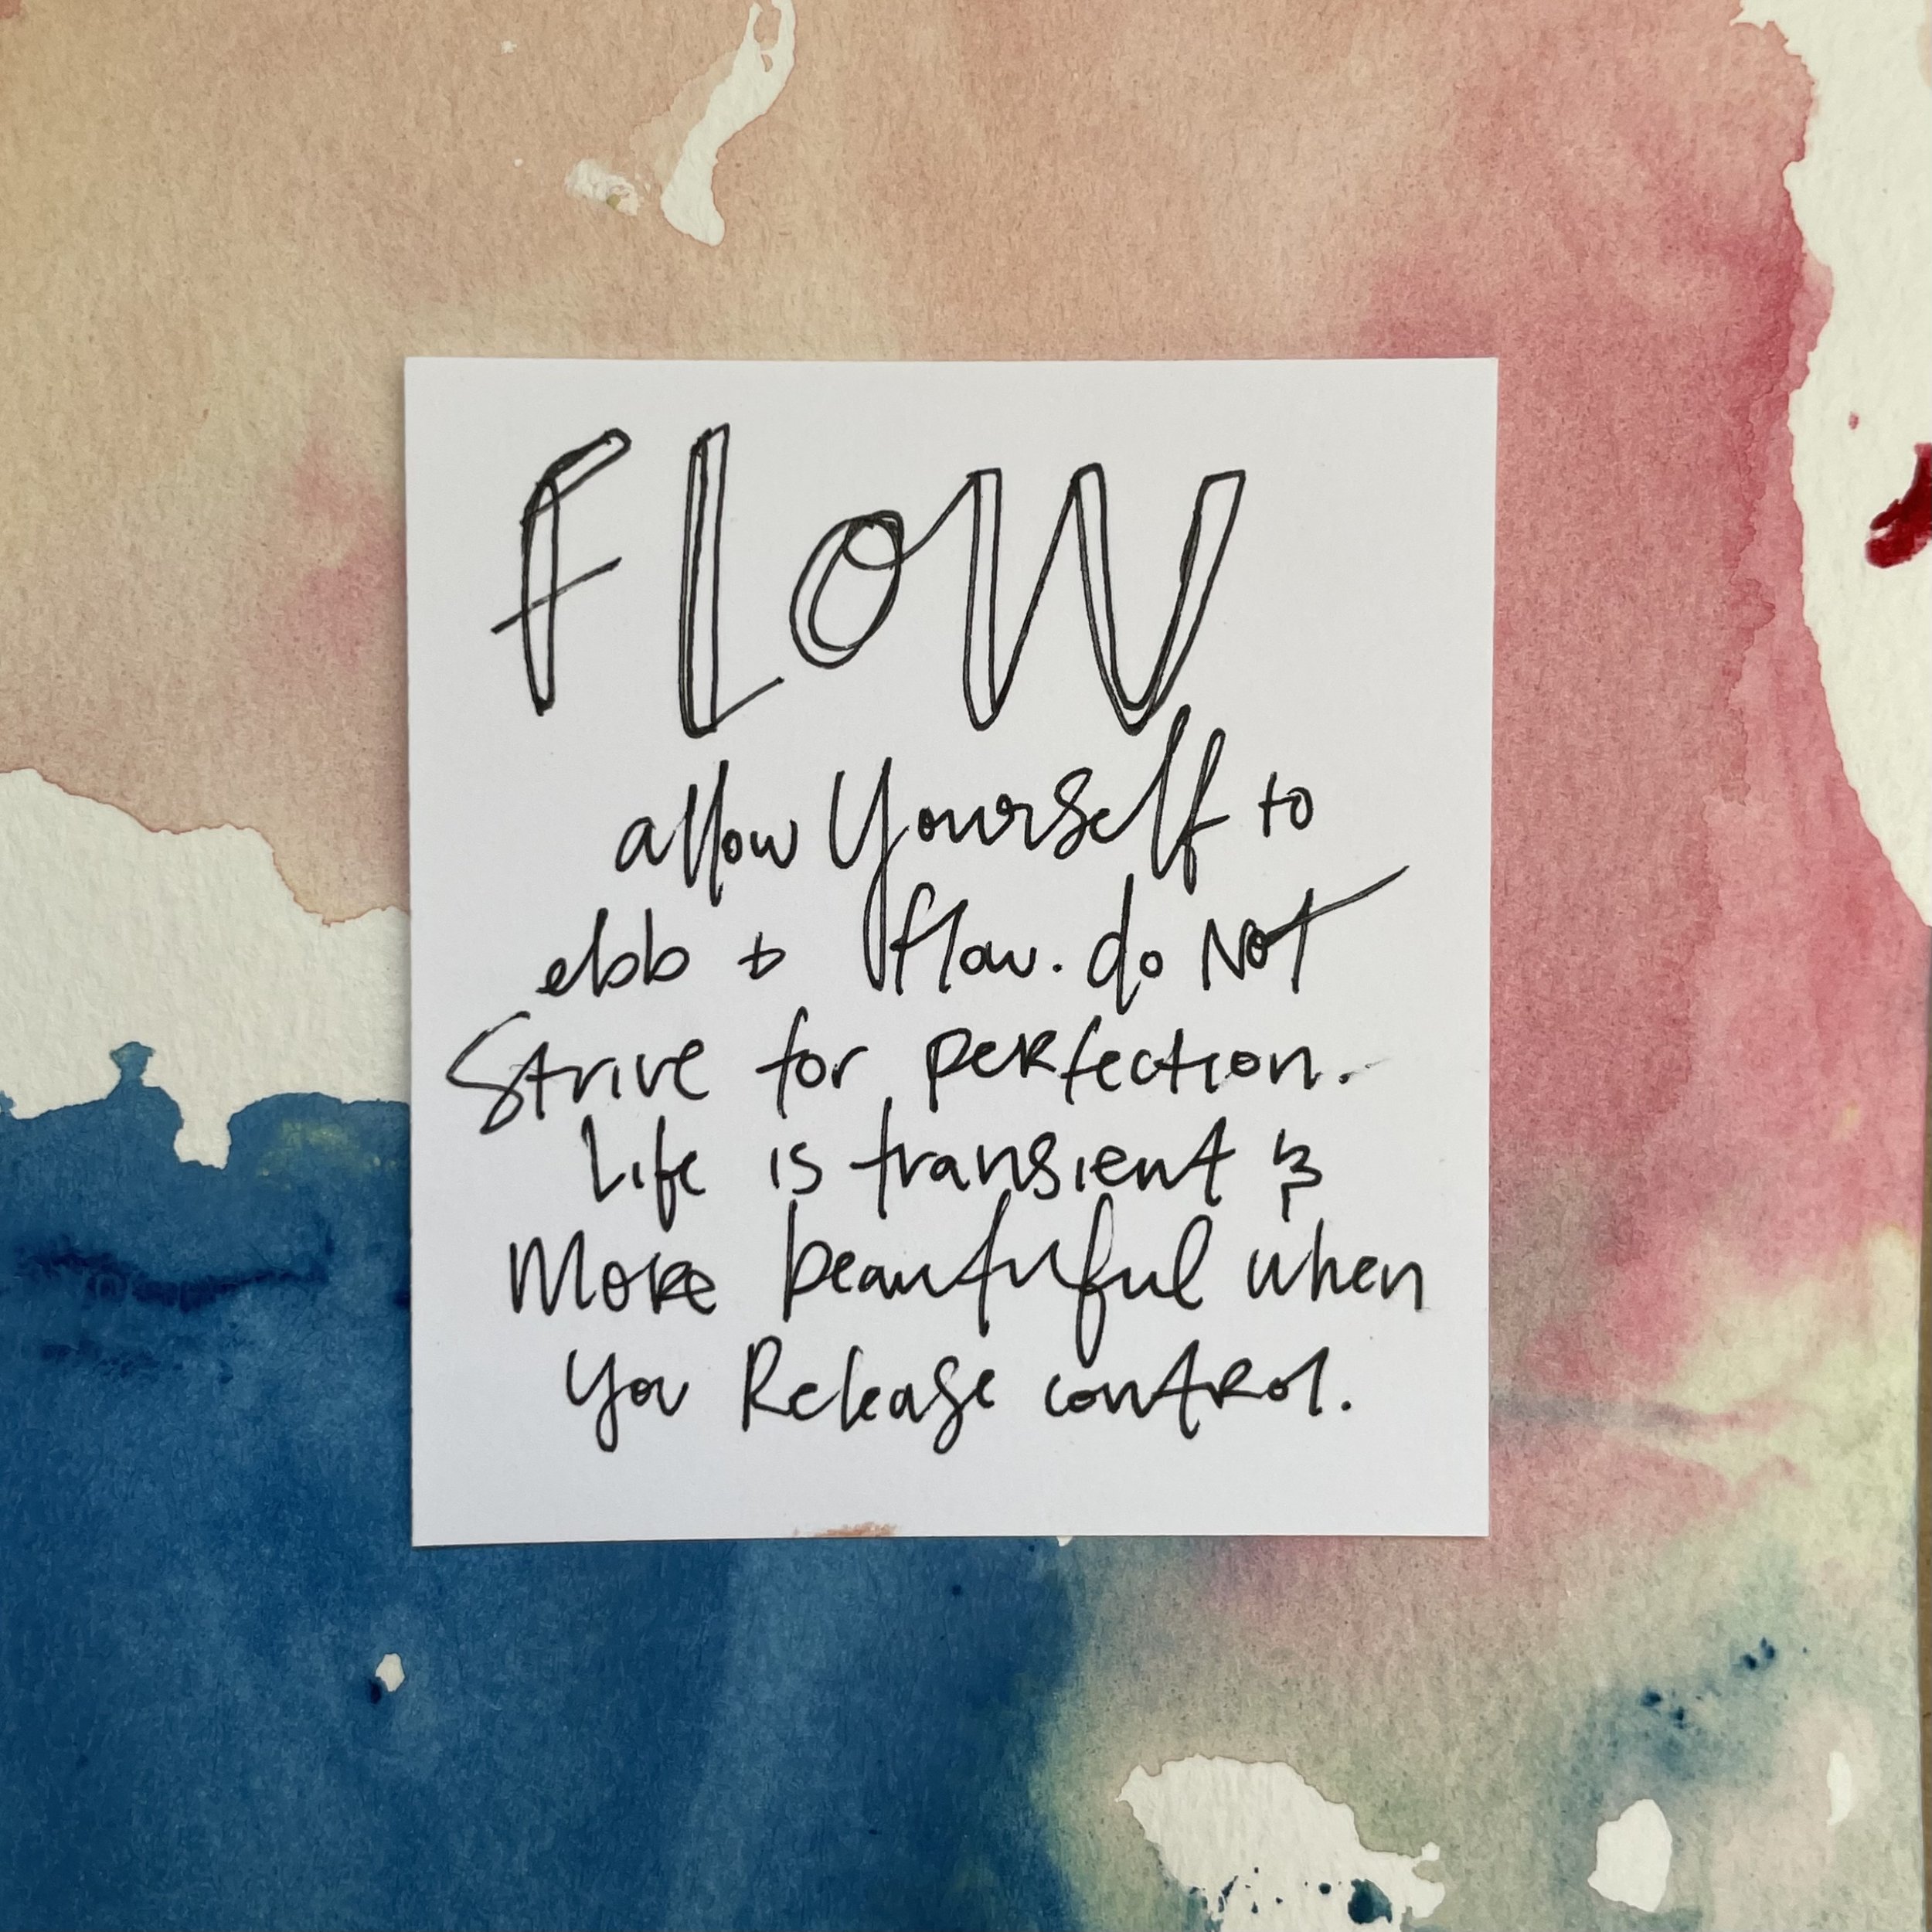 FLOW
allow yourself to
ebb & flow. do Not
Strive for peRfection.
Life is transient &
MoRe beautiful when
you Release contRol.